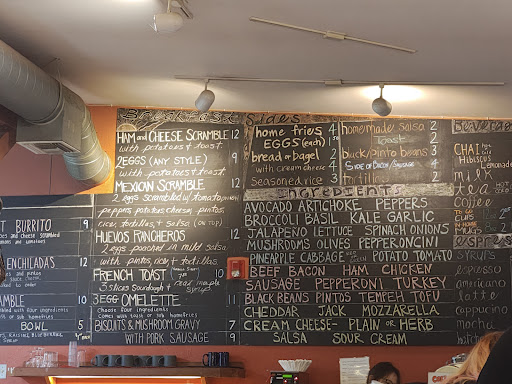 T BURRITO 9
ENCHILADAS 12
MBLE 10
BOWL 5
Breakfast
HAM and CHEESE SCRAMBLE 12
with potatoes & toast
2 EGGS (ANY STYLE) 9
with potatoes & toast
MEXICAN SCRAMBLE 12
2 eggs scrambled w/ tomato, onion
peppers, potatoes, cheese, pintos
rice, tortillas, & salsa (on top)
HUEVOS RANCHEROS
2 eggs poached in mild salsa
with pintos, rice & tortillas
FRENCH TOAST
3 slices sourdough &
real maple
syrup
3 EGG OMELETTE 11
Choose four ingredients
comes with toast or sub homefries
BISCUITS & MUSHROOM GRAVY 7
WITH PORK SAUSAGE 9
Sides
home fries 4
EGGS (each)
bread or bagel 2
with cream cheese
Seasoned rice 3
homemade salsa 2
Toast 2
black/pinto beans 3
Side of Bacon/Sausage 4
tortilla
ingredients
AVOCADO ARTICHOKE PEPPERS
BROCCOLI BASIL KALE GARLIC
JALAPEÑO LETTUCE SPINACH ONIONS
MUSHROOMS OLIVES PEPPERONCINI
PINEAPPLE CABBAGE POTATO TOMATO
BEEF BACON HAM CHICKEN
SAUSAGE PEPPERONI TURKEY
BLACK BEANS PINTOS TEMPEH TOFU
CHEDDAR JACK MOZZARELLA
CREAM CHEESE- PLAIN or HERB
SALSA SOUR CREAM
beverages
CHAI
Hibiscus
Lemonade
milk
tea
coffee
espresso
SYRUPS
espresso
americano
latte
cappuccino
mocha